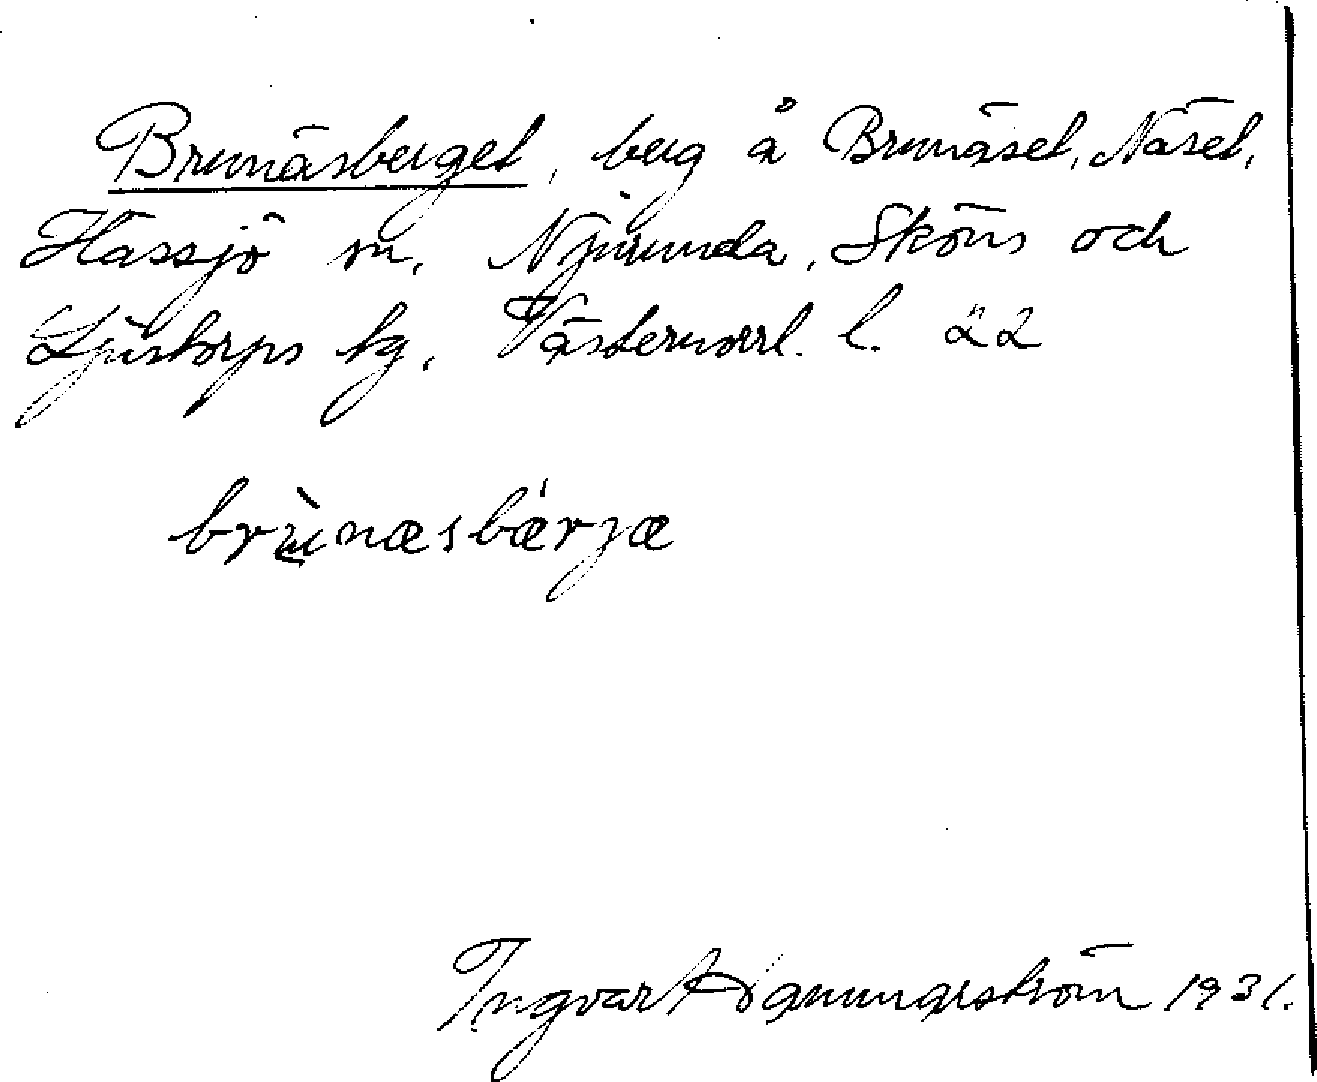 Brunäsberget, berg å Brunäset, Näset,
Hässjö sn, Njurunda, Sköns och
Ljustorps tg, Västernorrl. l. 22
brùnæsbǽrjæ
Ingvar 1931.